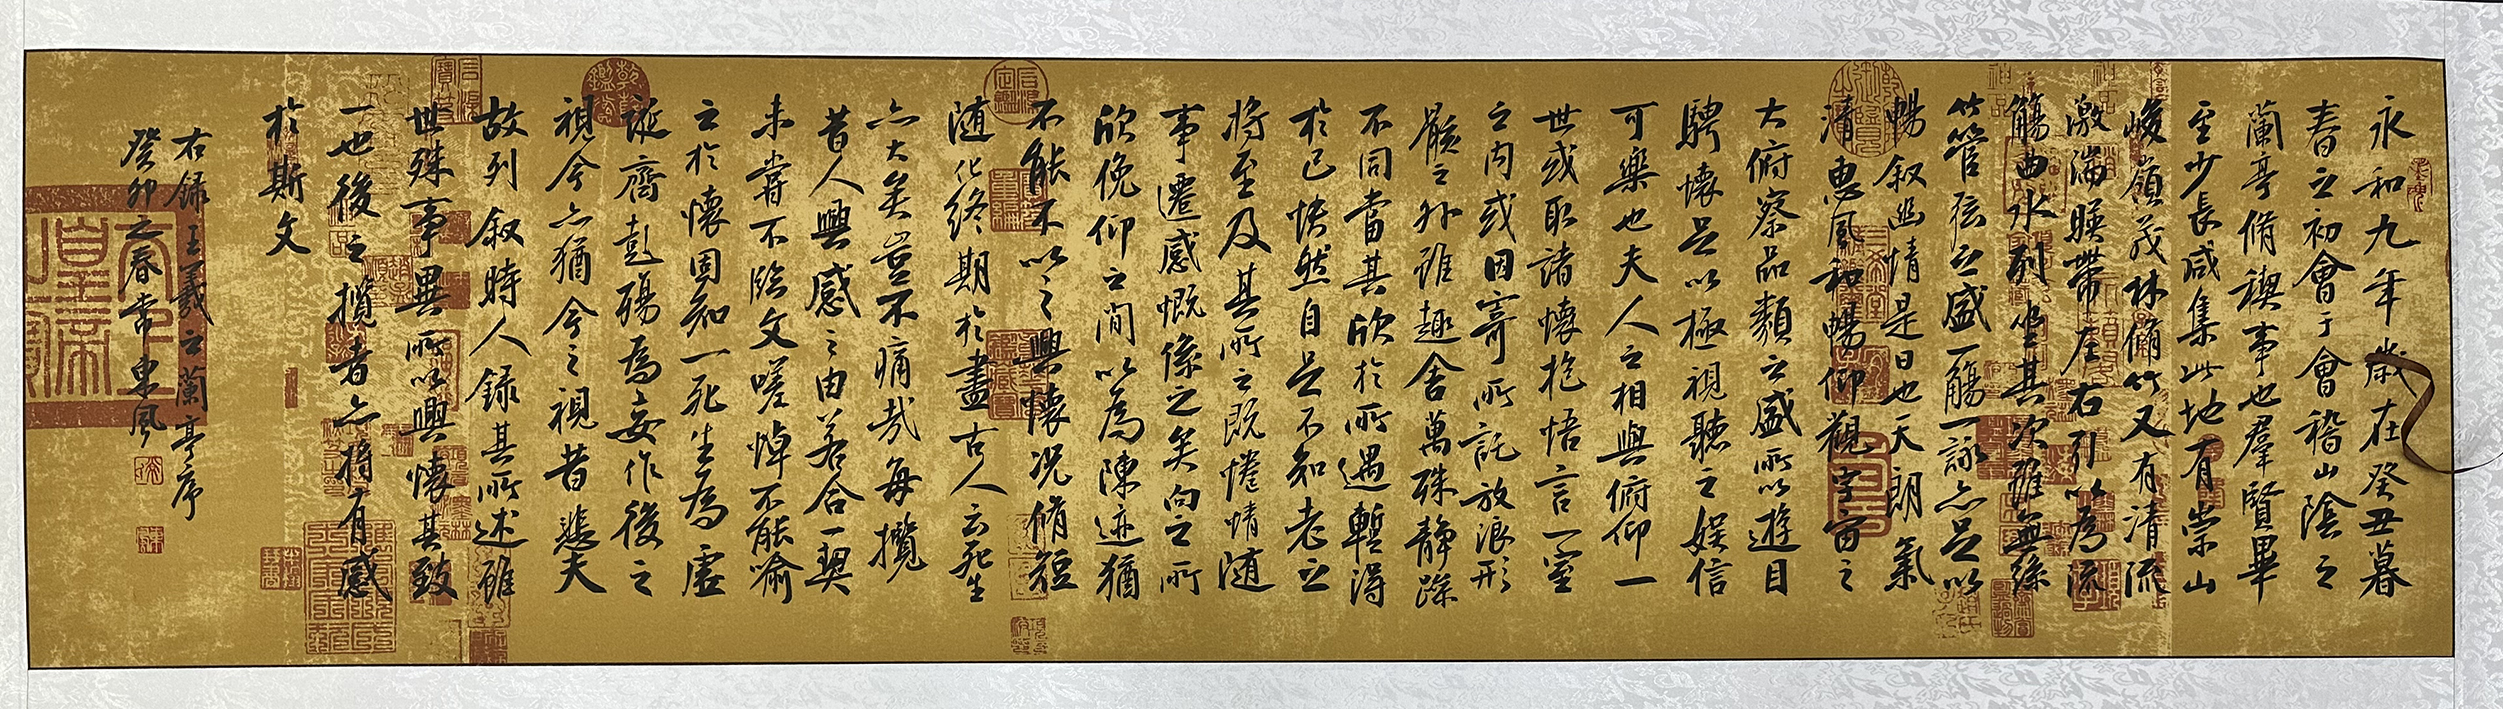 永和九年歲在癸丑暮
春之初會于會稽山陰之
蘭亭脩禊事也羣賢畢
至少長咸集此地有崇山
峻嶺茂林脩竹又有清流
激湍暎帶左右引以為流
觴曲水列坐其次雖無絲
竹管弦之盛一觴一詠亦足以
暢叙幽情是日也天朗氣
清惠風和暢仰觀宇宙之
大俯察品類之盛所以遊目
騁懷足以極視聽之娛信
可樂也夫人之相與俯仰一
世或取諸懷抱悟言一室
之內或因寄所託放浪形
骸之外雖趣舍萬殊靜躁
不同當其欣於所遇暫得
於己快然自足不知老之
將至及其所之既惓情隨
事遷感慨係之矣向之所
欣俛仰之間以為陳迹猶
不能不以之興懷況脩短
隨化終期於盡古人云死生
亦大矣豈不痛哉每攬
昔人興感之由若合一契
未嘗不臨文嗟悼不能喻
之於懷固知一死生為虛
誕齊彭殤為妄作後之
視今亦猶今之視昔悲夫
故列叙時人錄其所述雖
世殊事異所以興懷其致
一也後之攬者亦將有感
於斯文
右録王羲之蘭亭序
癸卯之春常東風